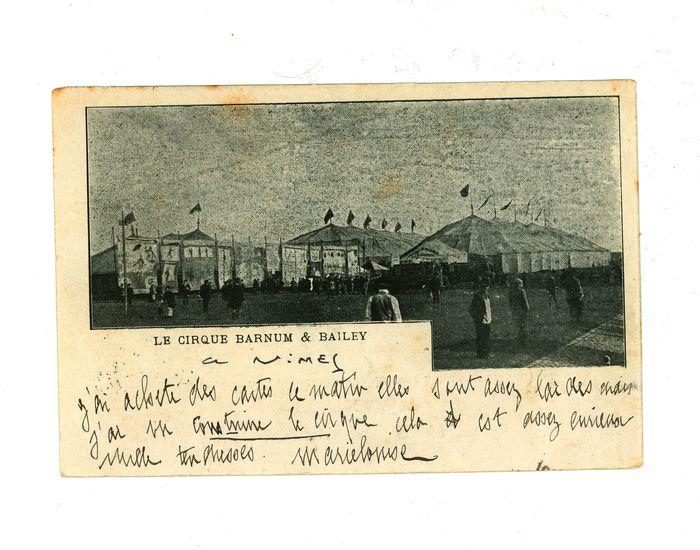 LE CIRQUE BARNUM & BAILEY
a Nîmes
j'ai acheté des cartes ce matin elles sont assez laides mais
j'ai vu construire le cirque cela est assez curieux
mille tendresses. Marielouise